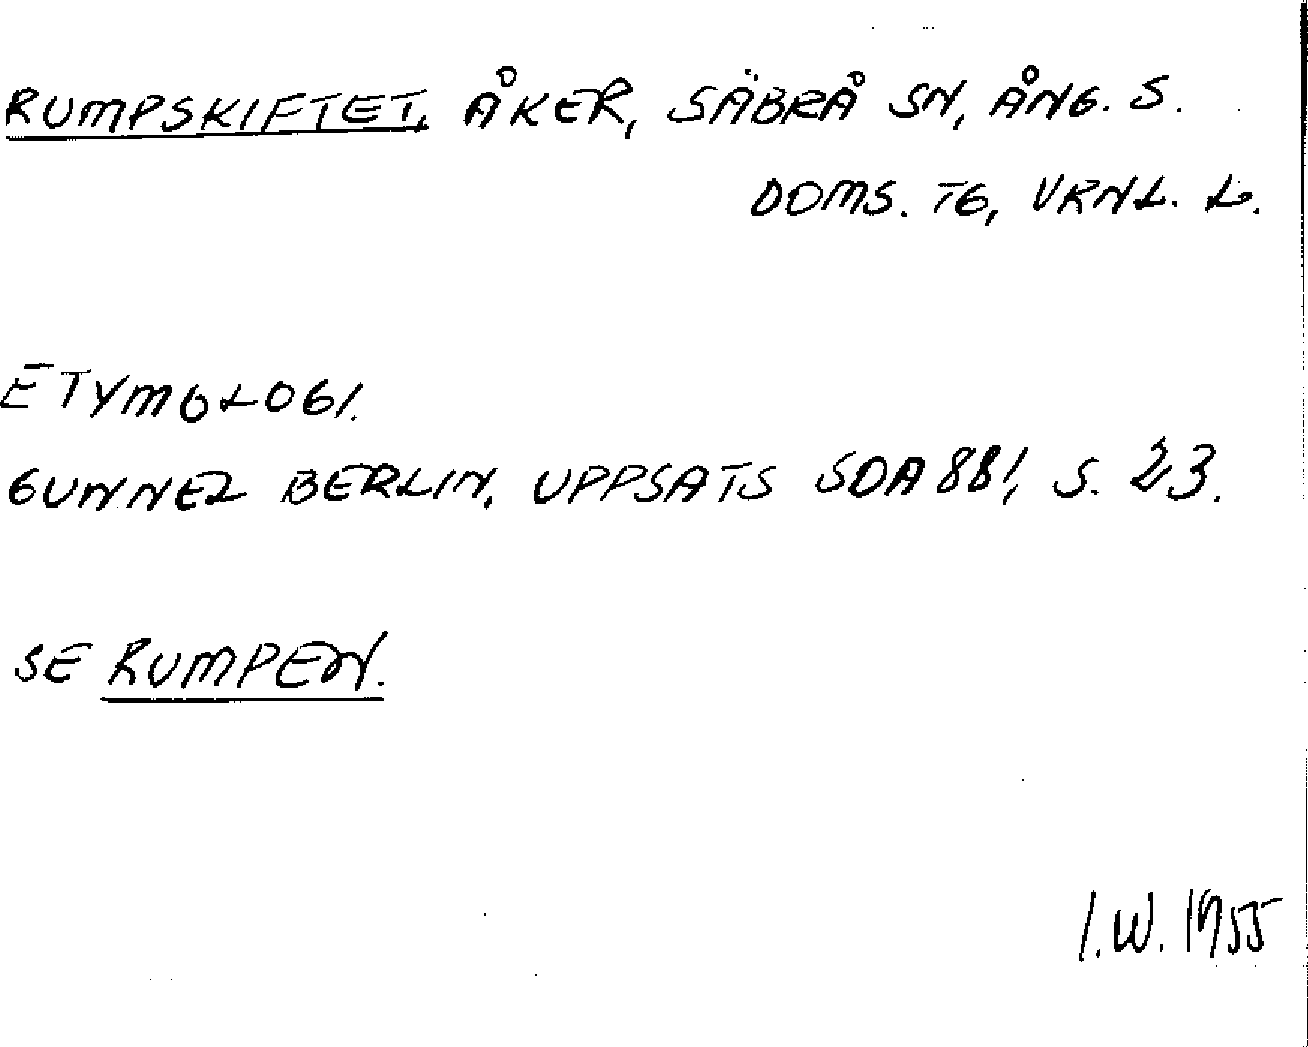 RUMPSKIFTET, ÅKER, SÄBRÅ SN, ÅNG. S.
DOMS. TG, VRNL. L.
ETYMOLOGI.
GUNNEL BERLIN, UPPSATS SOA 881, S. 23.
SE RUMPEN.
I.W. 1955